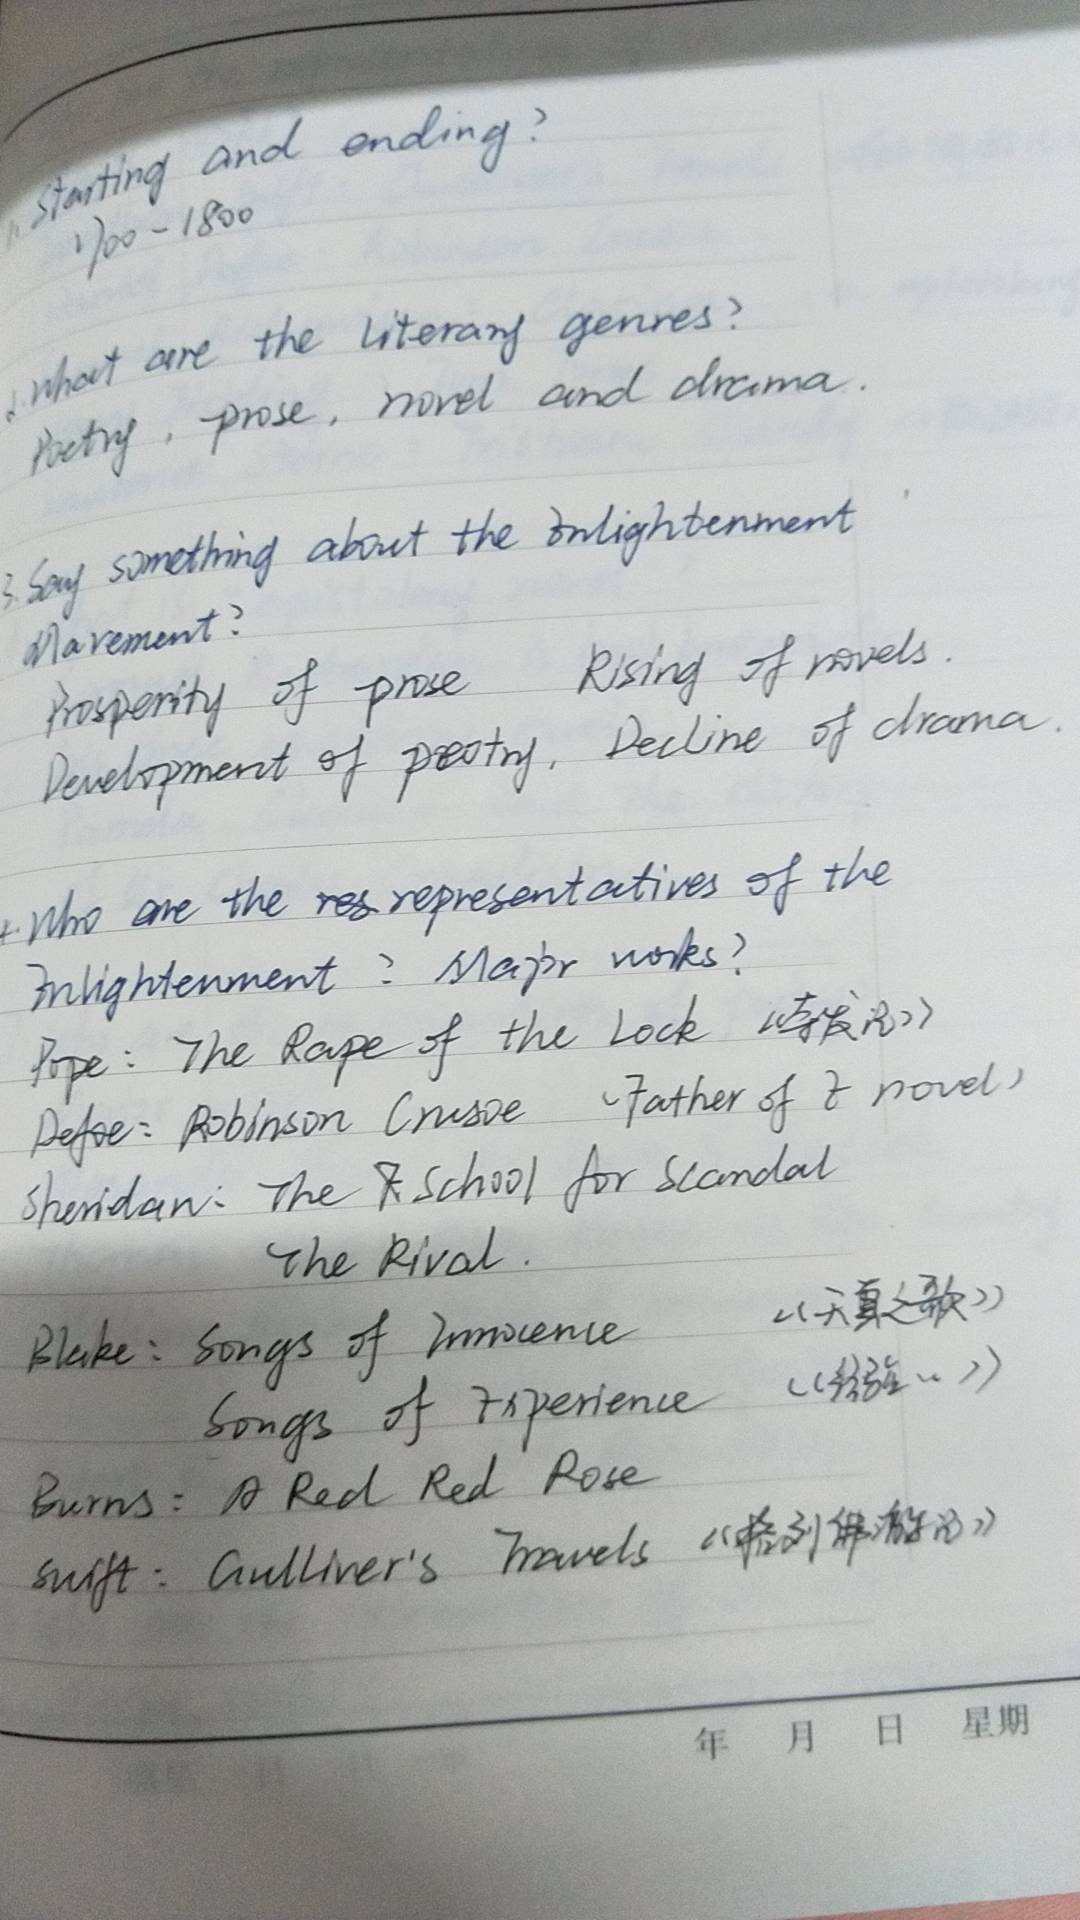 1. Starting and ending?
1700-1800
2. What are the literary genres?
Poetry, prose, novel and drama.
3. Say something about the Enlightenment
Movement?
Prosperity of prose Rising of novels.
Development of peotry, Decline of drama.
4. Who are the res representatives of the
Enlightenment? Major works?
Pope: The Rape of the Lock 《夺发记》
Defoe: Robinson Crusoe "Father of E novel"
Sheridan: The School for Scandal
The Rival.
Blake: Songs of Innocence 《天真之歌》
Songs of Experience 《经验..》
Burns: A Red Red Rose
Swift: Gulliver's Travels 《格列佛游记》
年 月 日 星期